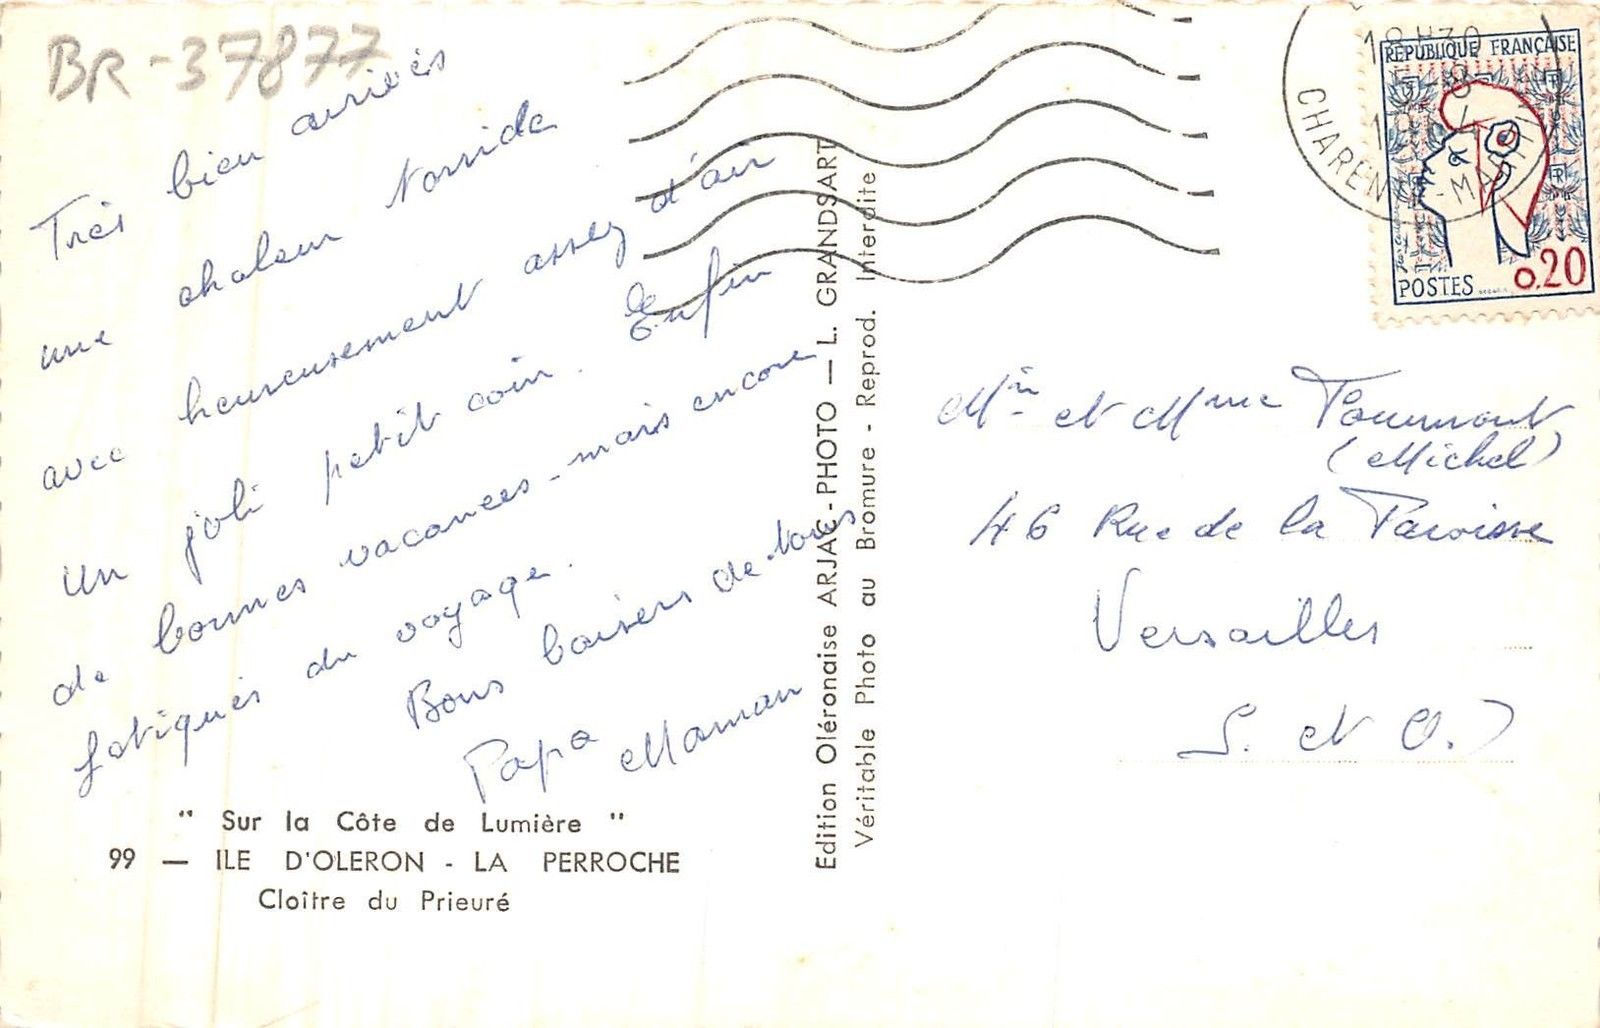 BR-37877
Très bien arrivés
une chaleur torride
avec heureusement assez d'air
Un joli petit coin. Enfin
de bonnes vacances - mais encore
fatigués du voyage.
Bons baisers de tous
Papa Maman
" Sur la Côte de Lumière "
99 — ILE D'OLERON - LA PERROCHE
Cloître du Prieuré
Edition Oléronaise ARJAC-PHOTO — L. GRANDSART
Véritable Photo au Bromure - Reprod. Interdite
18H30
CHARENTE-MARITIME
REPUBLIQUE FRANÇAISE
POSTES 0.20
Mr et Mme
(Michel)
46 Rue de la Paroisse
Versailles
S. et O.)